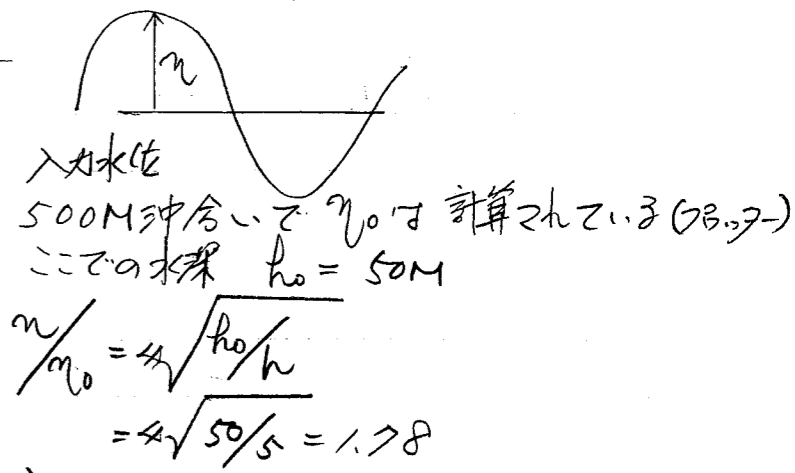 η
入力水位
500M沖合いで η₀は 計算されている(プロッター)
ここでの水深 h₀ = 50M
η/η₀ = ⁴√h₀/h
= ⁴√50/5 = 1.78